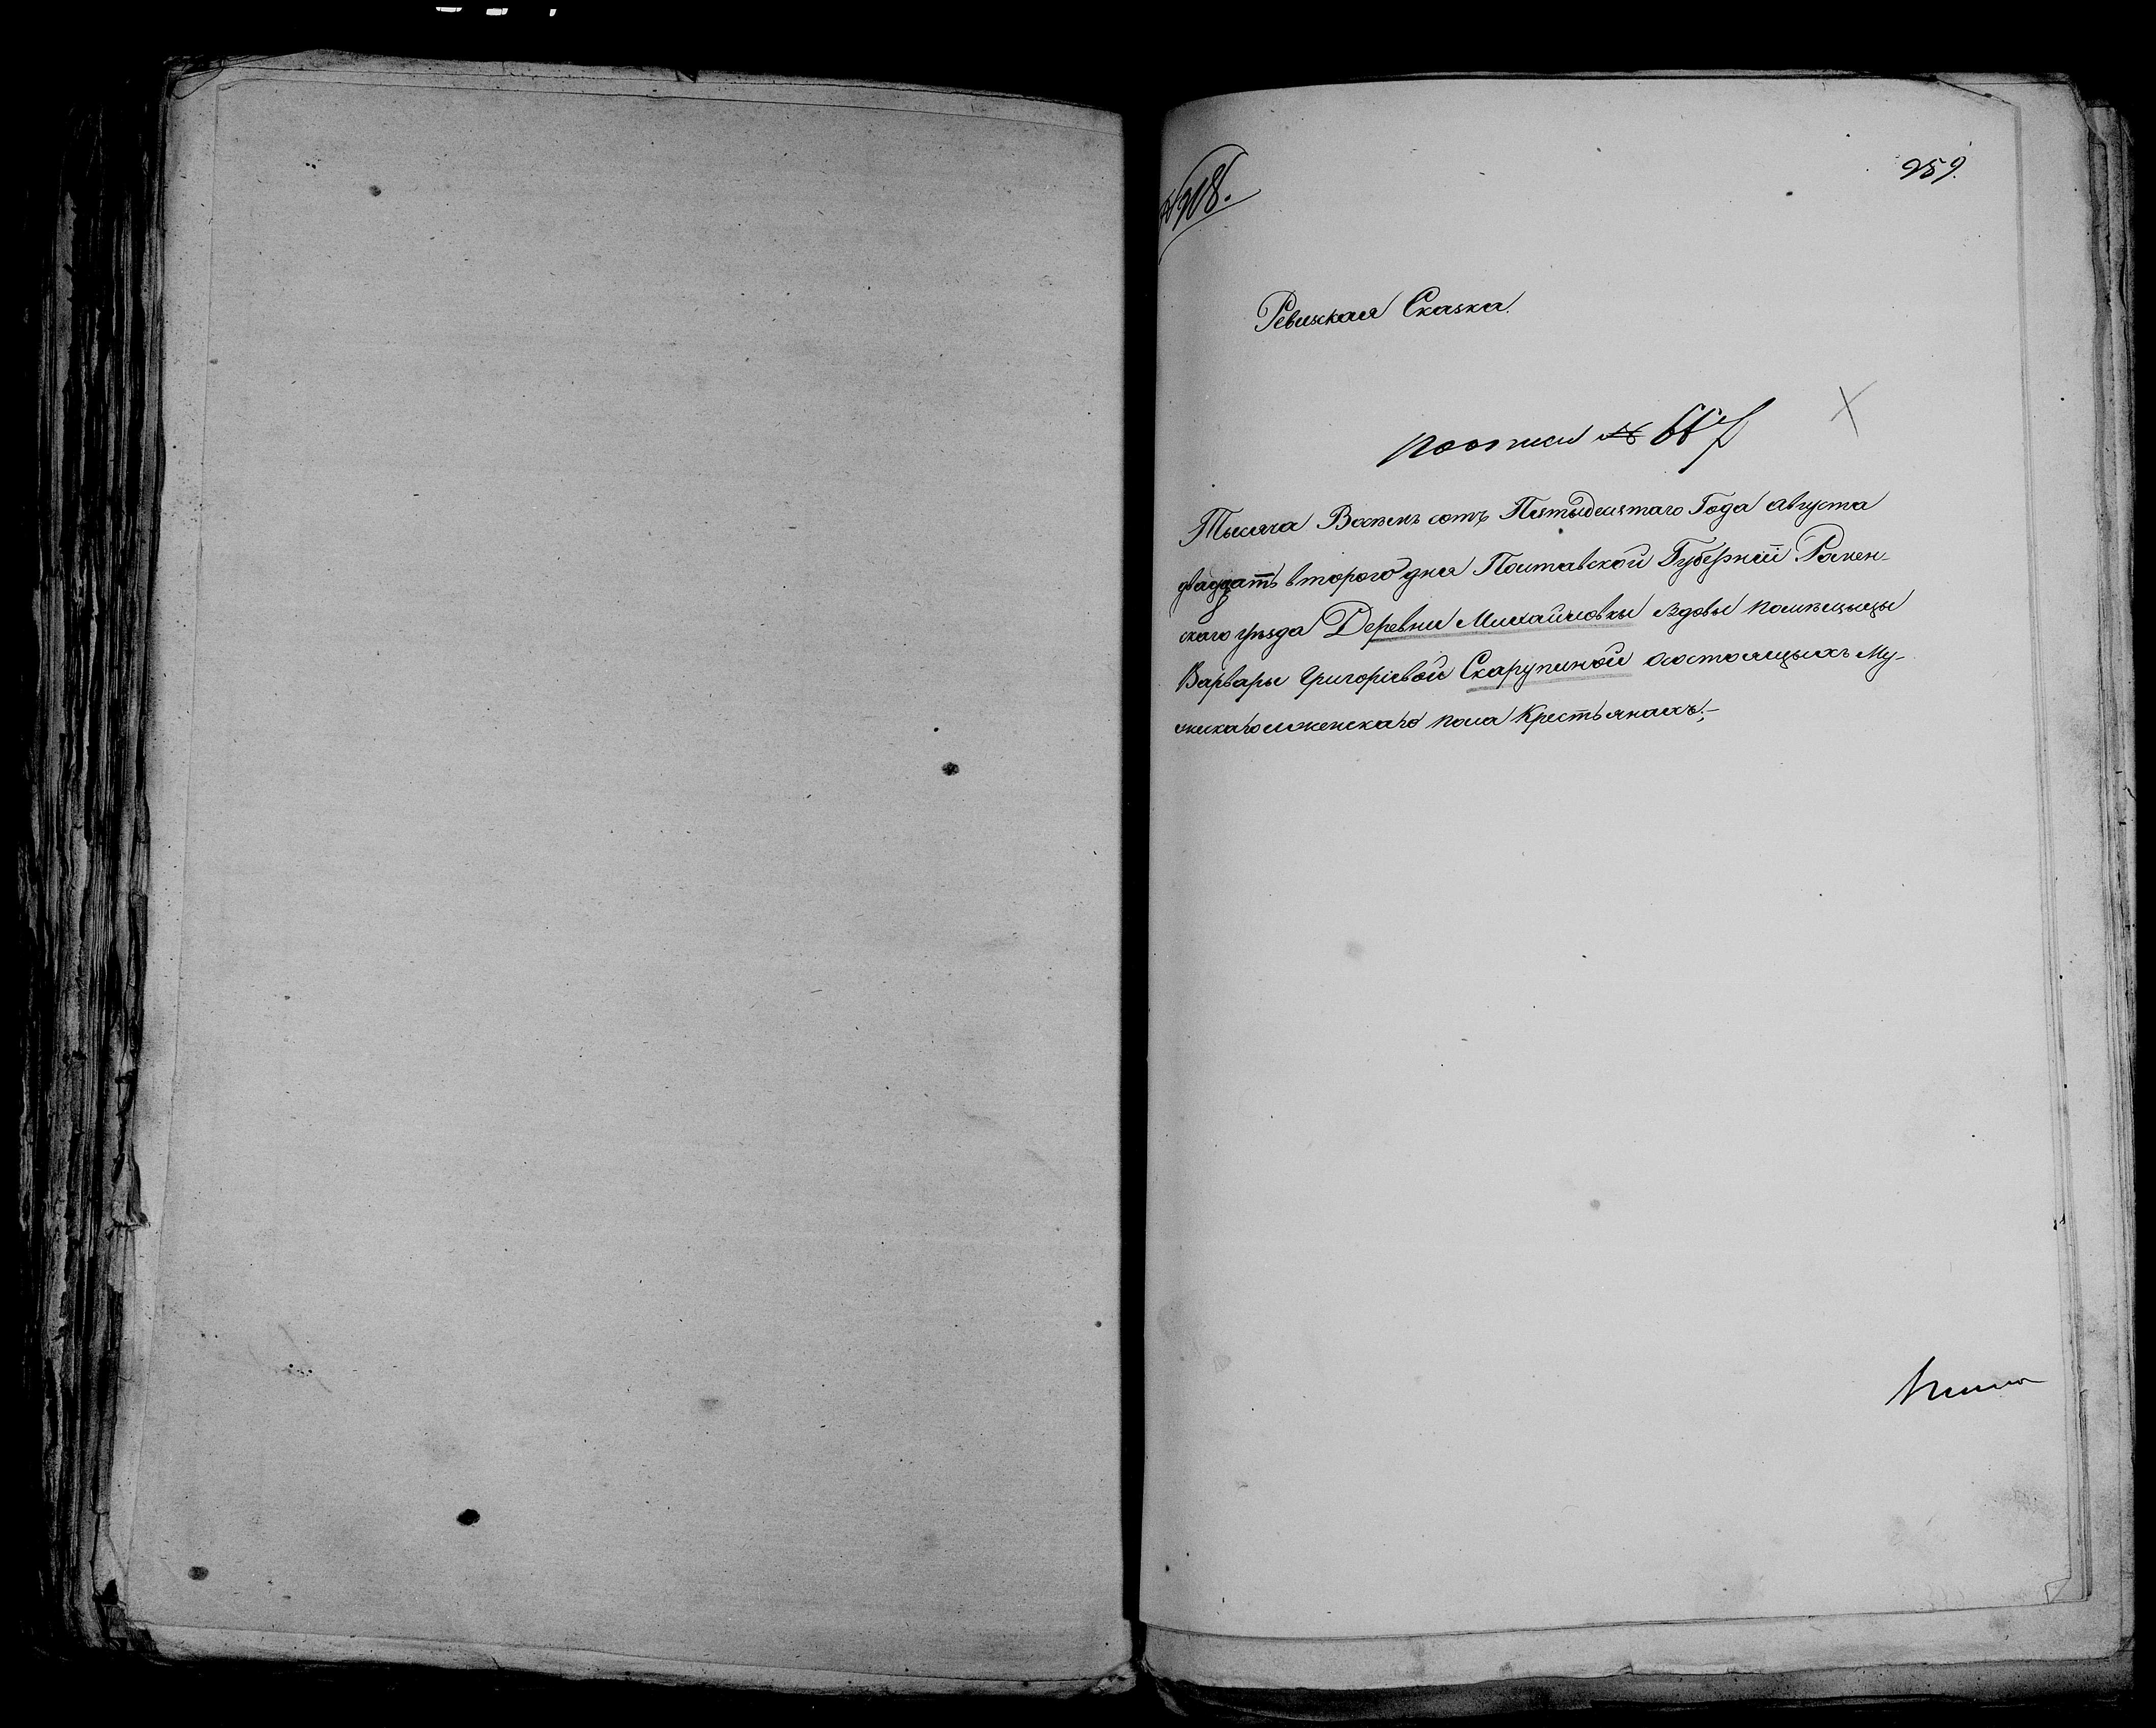 259.
№ 908.
Ревизская Сказка.
по описи № 667
Тысяча Восемь сотъ Пятыдесятаго Года августа
двадцать второго дня Полтавской Губерніи Ромен-
ского уѣзда Деревни Михайловки вдовы помѣщыцы
Варвары Григоріевой Скарупиной осостоящыхъ Му-
жскаго и женскаго пола Крестьянахъ;-